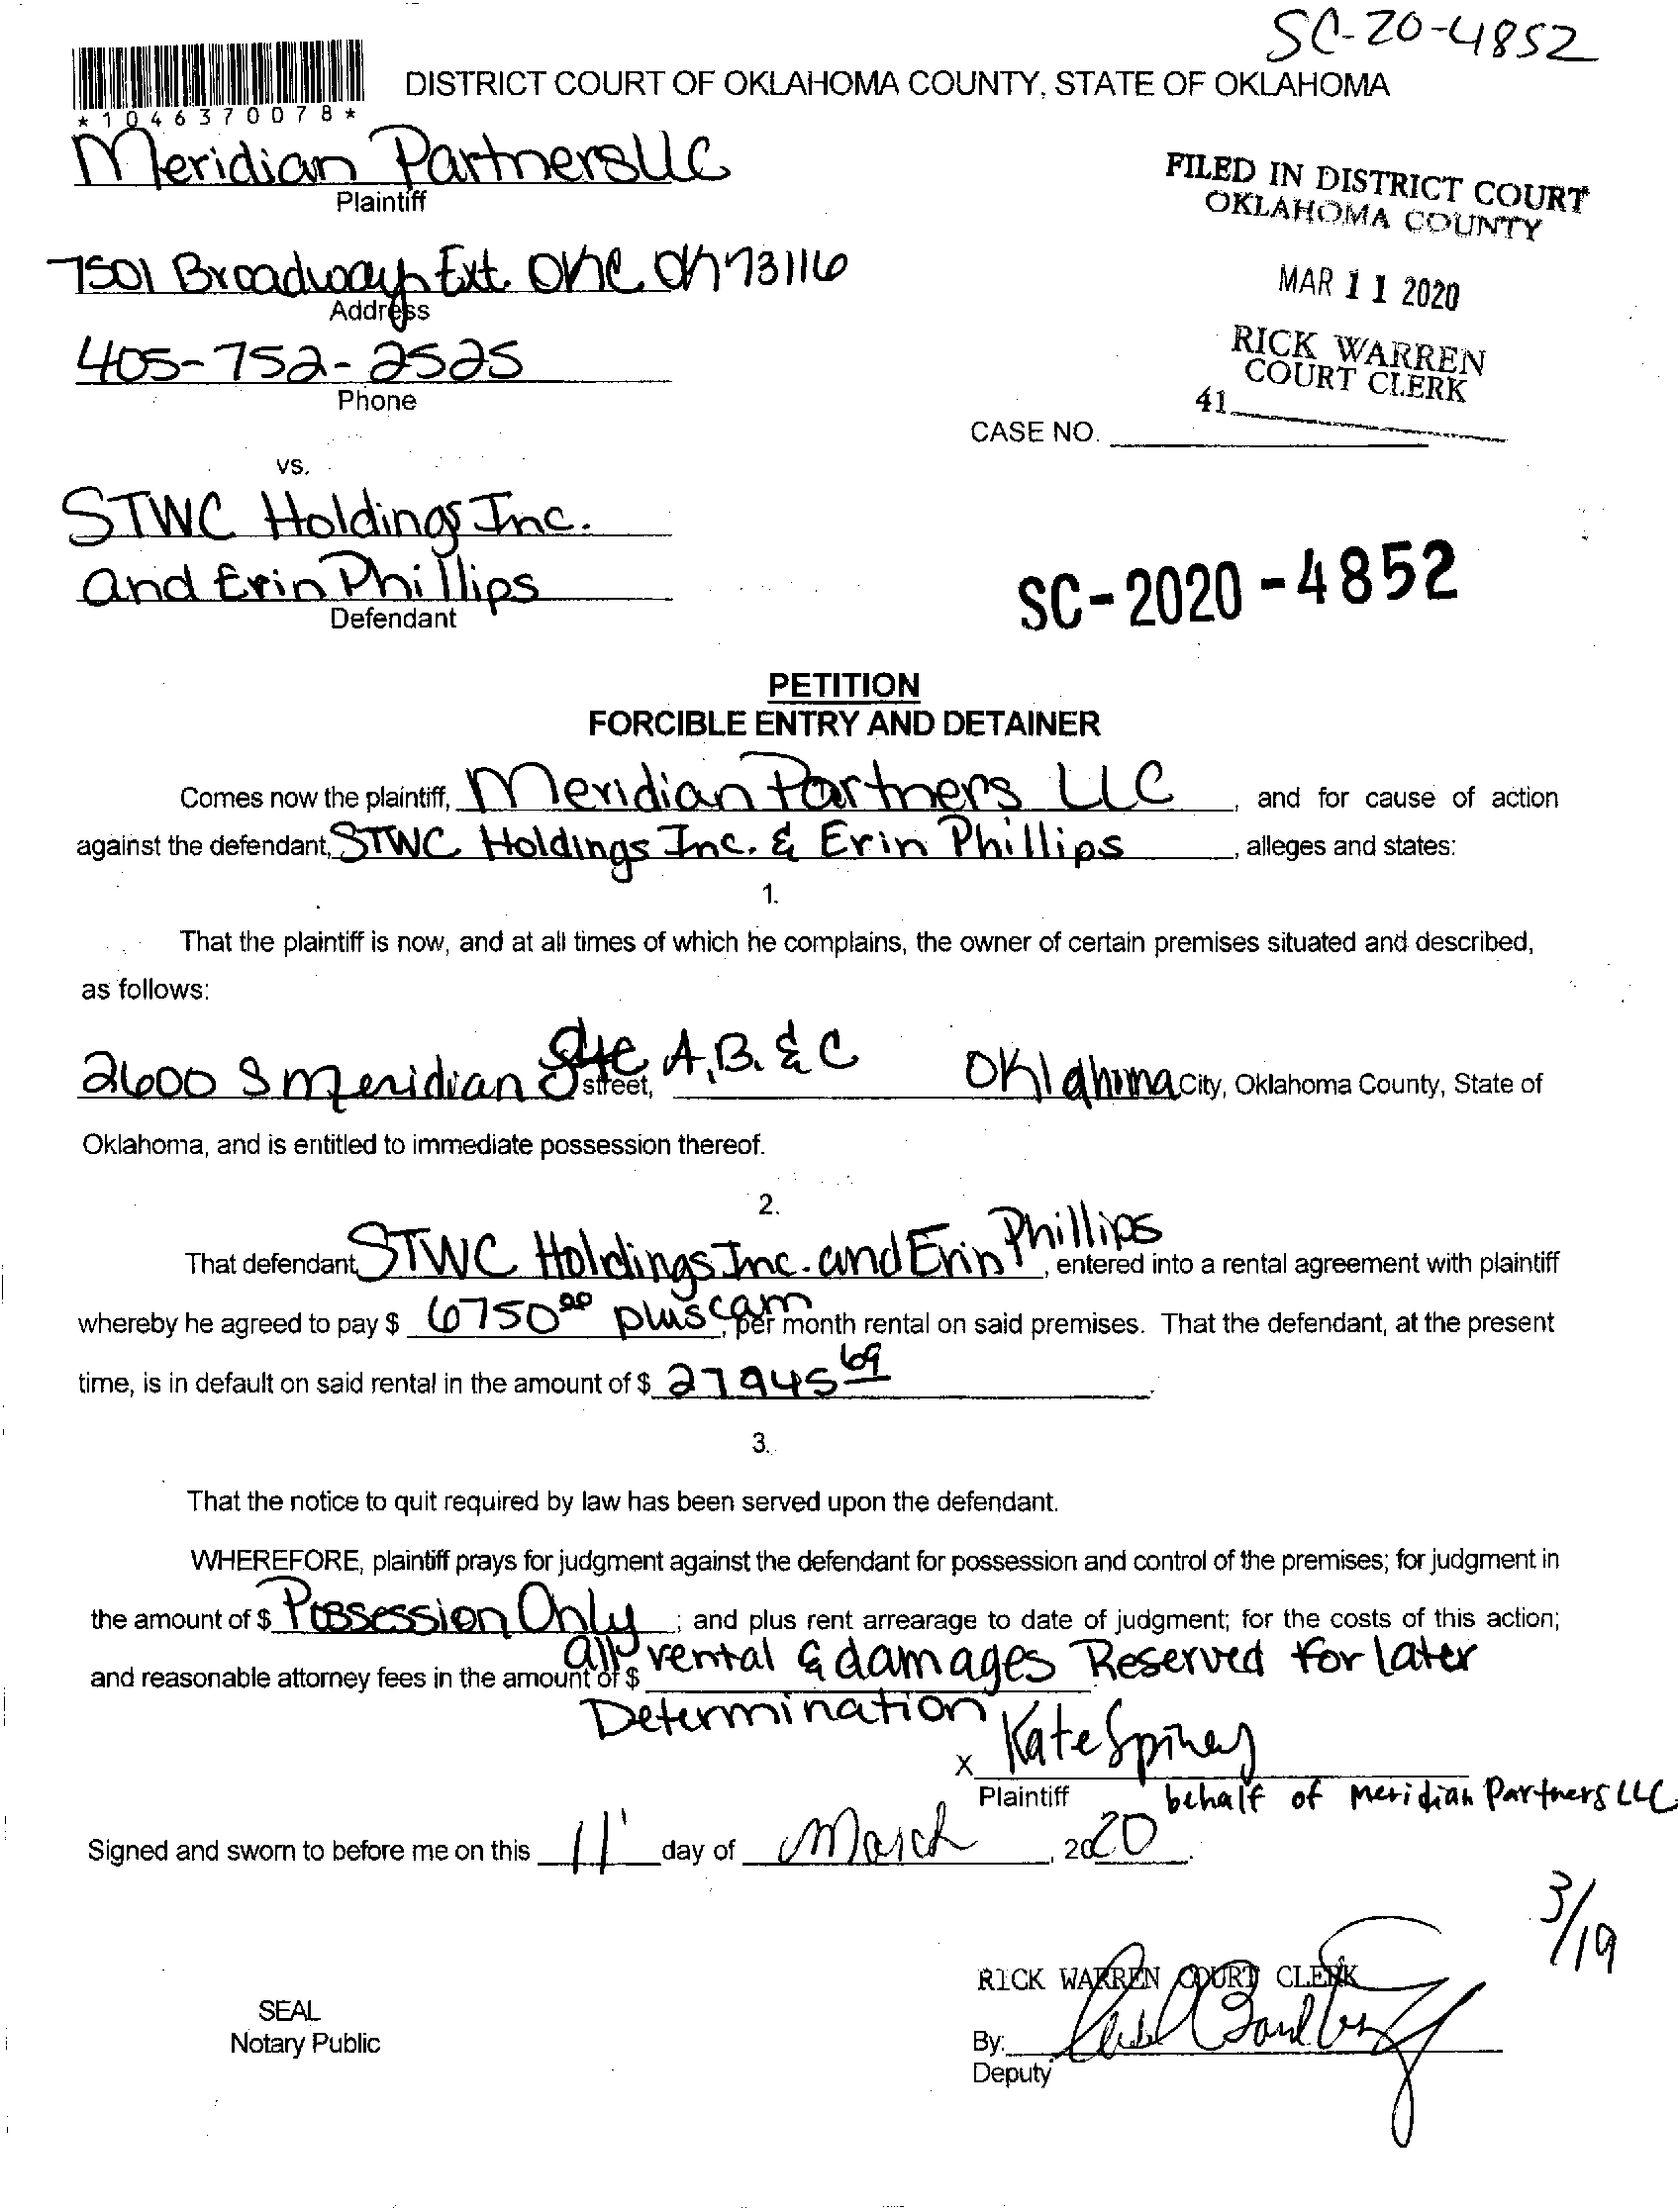 SC-20-4852
*1046370078*
DISTRICT COURT OF OKLAHOMA COUNTY, STATE OF OKLAHOMA
Meridian Partners LLC
Plaintiff
FILED IN DISTRICT COURT
OKLAHOMA COUNTY
7501 Broadway Ext. OKC OK 73116
Address
MAR 11 2020
405-752-2525
Phone
RICK WARREN
COURT CLERK
41
CASE NO.
vs.
STWC Holdings Inc.
and Erin Phillips
Defendant
SC-2020-4852
PETITION
FORCIBLE ENTRY AND DETAINER
Comes now the plaintiff, Meridian Partners LLC, and for cause of action
against the defendant, STWC Holdings Inc. & Erin Phillips, alleges and states:
1.
That the plaintiff is now, and at all times of which he complains, the owner of certain premises situated and described,
as follows:
2600 S Meridian Ste A, B. & C street, Oklahoma City, Oklahoma County, State of
Oklahoma, and is entitled to immediate possession thereof.
2.
That defendant, STWC Holdings Inc. and Erin Phillips, entered into a rental agreement with plaintiff
whereby he agreed to pay $ 6750 00 plus cam, per month rental on said premises. That the defendant, at the present
time, is in default on said rental in the amount of $ 27945 69.
3.
That the notice to quit required by law has been served upon the defendant.
WHEREFORE, plaintiff prays for judgment against the defendant for possession and control of the premises; for judgment in
the amount of $ Possession Only; and plus rent arrearage to date of judgment; for the costs of this action;
and reasonable attorney fees in the amount of $ all rental & damages Reserved for later
Determination
x Kate Spiney
Plaintiff behalf of Meridian Partners LLC
Signed and sworn to before me on this 11 day of March, 2020.
3/19
RICK WARREN COURT CLERK
SEAL
Notary Public
By:
Deputy